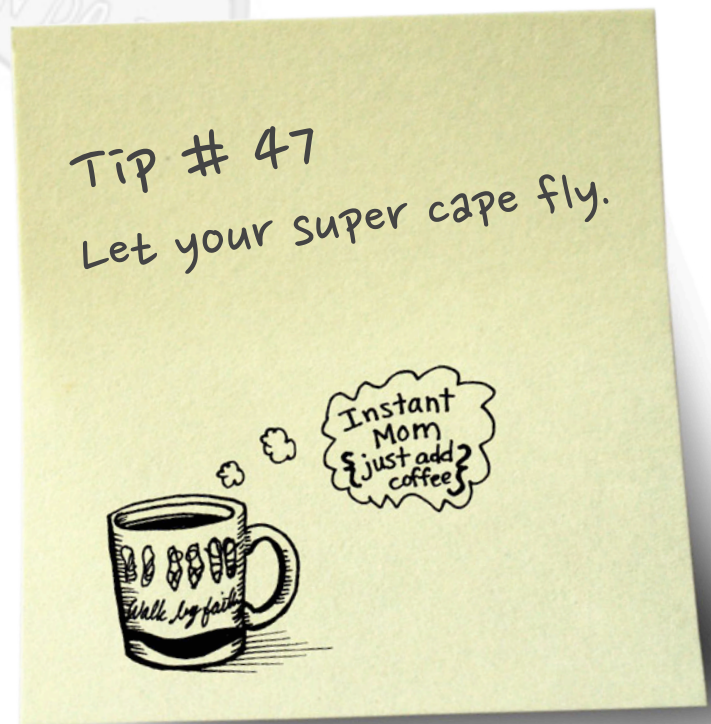 Tip # 47
Let your super cape fly.
Instant
Mom
{just add
coffee}
Walk by faith